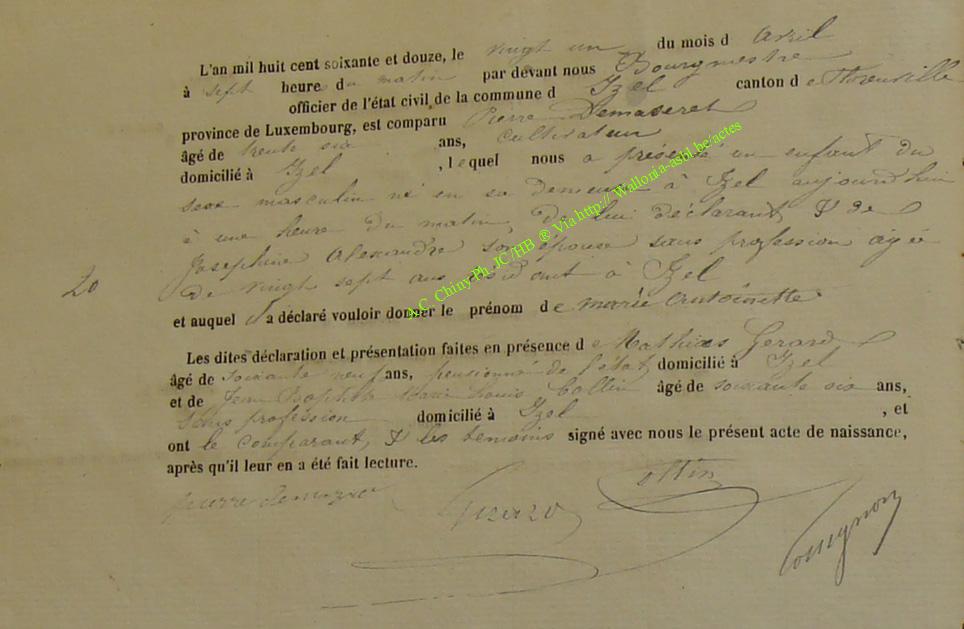 L'an mil huit cent soixante et douze, le vingt un du mois d Avril
à sept heure du matin par devant nous Bourgmestre
officier de l'état civil de la commune d Izel canton de Florenville
province de Luxembourg, est comparu Pierre Demazeret
âgé de trente six ans, cultivateur
domicilié à Izel , lequel nous a présenté un enfant du
sexe masculin né en sa demeure à Izel aujourd'hui
à une heure du matin, de lui déclarant, & de
Joséphine Alexandre son épouse sans profession agée
de vingt sept ans résidant à Izel
20
et auquel il a déclaré vouloir donner le prénom de marie Antoinette
Les dites déclaration et présentation faites en présence de Mathias Gerard
âgé de soixante neuf ans, pensionné de l'état, domicilié à Izel
et de Jean Baptiste Marie Louis Collin âgé de soixante six ans,
sans profession domicilié à Izel , et
ont le comparant, & les temoins signé avec nous le présent acte de naissance,
après qu'il leur en a été fait lecture.
pierre
A.C. Chiny Ph. JC/HB ® Via http://Wallonia-asbl.be/actes